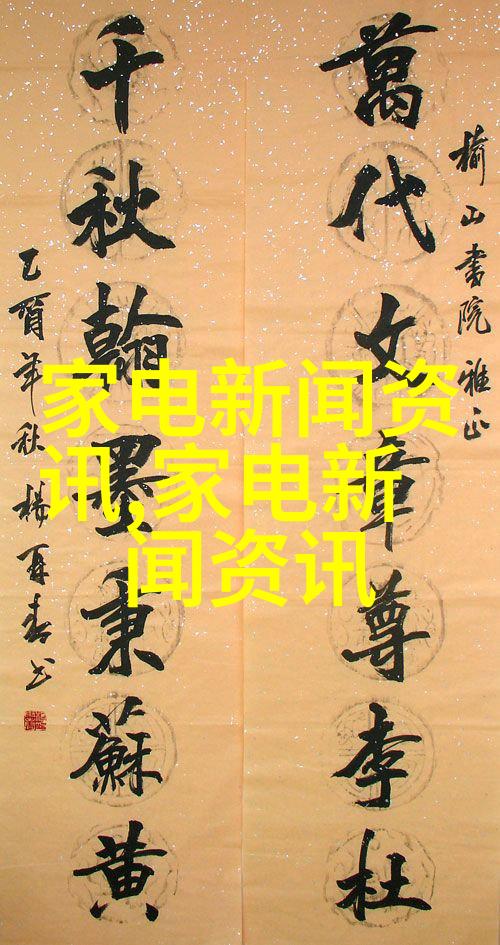 榆山書院雅正
萬代文章尊李杜
千秋翰墨秉蘇黄
乙酉年秋楊再春书
家电新闻资
讯,家电新
闻资讯